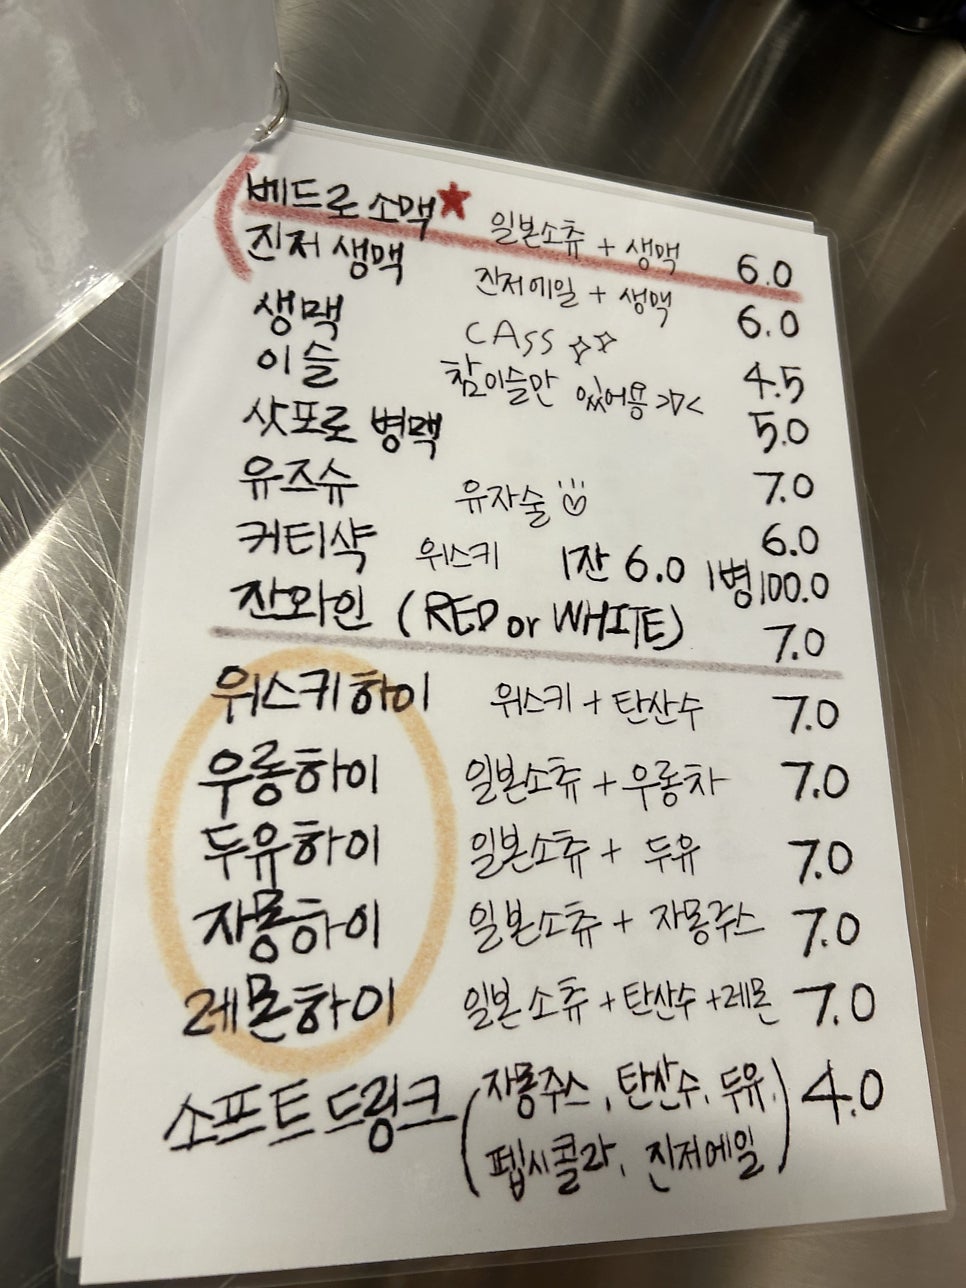 베드로 소맥★ 일본소츄 + 생맥 6.0
진저 생맥 진저에일 + 생맥 6.0
생맥 CASS 4.5
이슬 참이슬만 있어용 >▽< 5.0
삿포로 병맥 7.0
유즈슈 유자술 6.0
커티샥 위스키 1잔 6.0 1병 100.0
잔와인 (RED or WHITE) 7.0
위스키하이 위스키 + 탄산수 7.0
우롱하이 일본소츄 + 우롱차 7.0
두유하이 일본소츄 + 두유 7.0
자몽하이 일본소츄 + 자몽쥬스 7.0
레몬하이 일본소츄 + 탄산수 + 레몬 7.0
소프트드링크 (자몽주스, 탄산수, 두유, 4.0
펩시콜라, 진저에일)